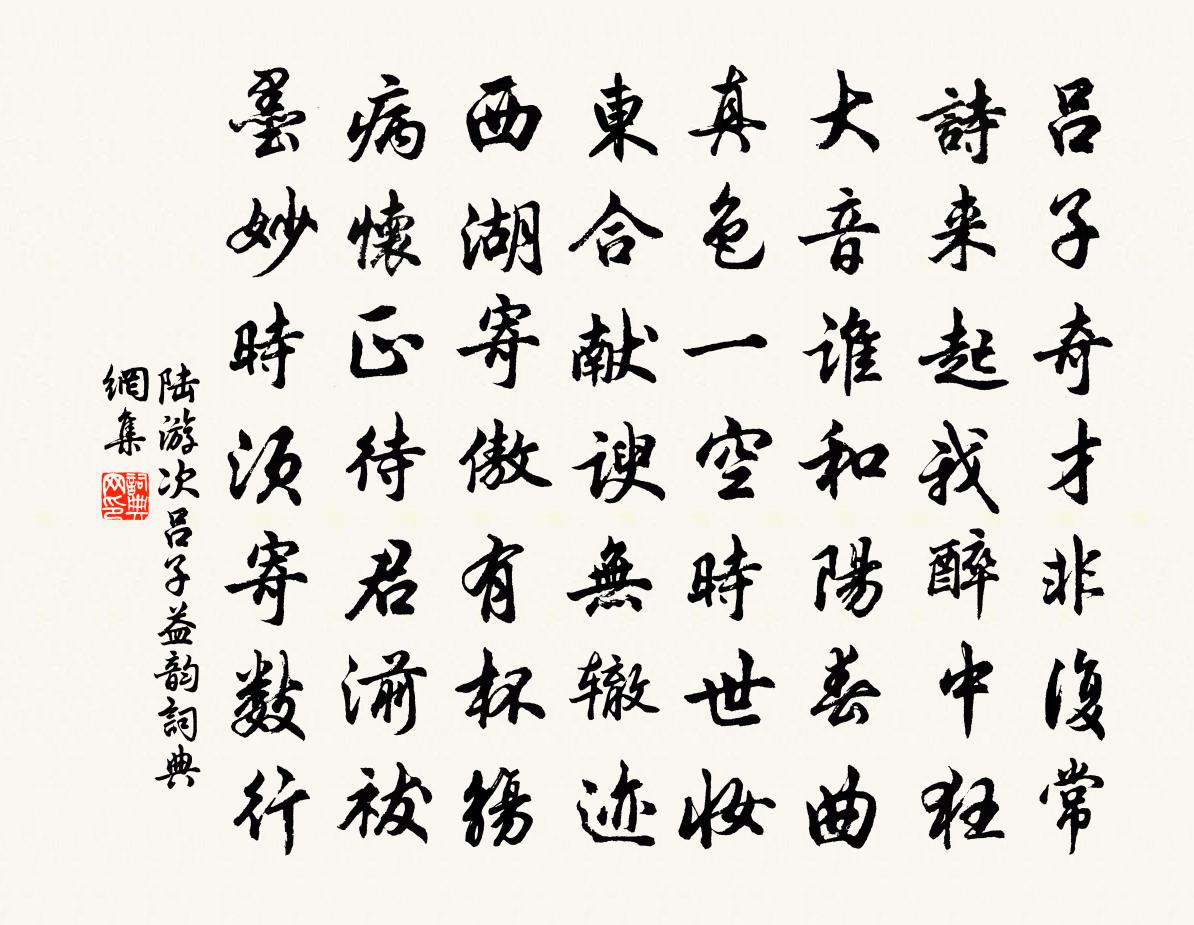 吕子奇才非復常
詩来起我醉中狂
大音谁和陽春曲
真色一空時世妆
東合献謏無辙迹
西湖寄傲有杯觴
病懷正待君湔祓
墨妙時须寄數行
陆游次吕子益韵詞典
網集
詞典
网印